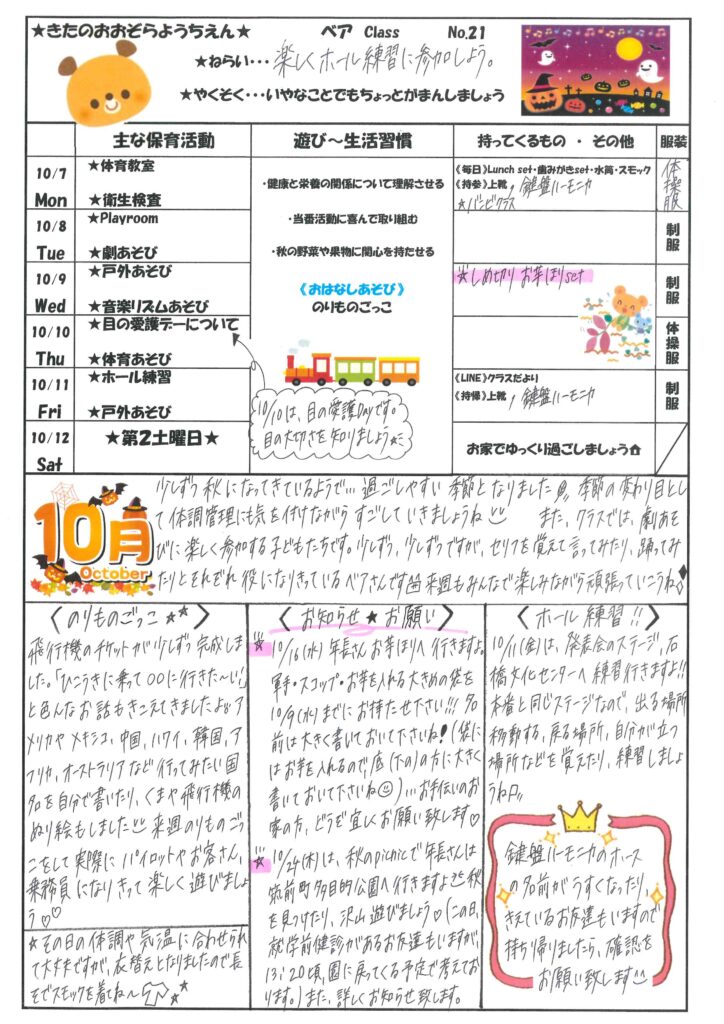 ★きたのおおぞらようちえん★ ベア Class No.21
★ねらい・・・楽しくホール練習に参加しよう。
★やくそく・・・いやなことでもちょっとがまんしましょう
主な保育活動 遊び～生活習慣 持ってくるもの ・ その他 服装
10/7 Mon
★体育教室
★衛生検査
10/8 Tue
★Playroom
★劇あそび
10/9 Wed
★戸外あそび
★音楽リズムあそび
10/10 Thu
★目の愛護デーについて
★体育あそび
10/11 Fri
★ホール練習
★戸外あそび
10/12 Sat
★第2土曜日★
・健康と栄養の関係について理解させる
・当番活動に喜んで取り組む
・秋の野菜や果物に関心を持たせる
《おはなしあそび》
のりものごっこ
10/10は、目の愛護Dayです。
目の大切さを知りましょう☆
《毎日》Lunch set・歯みがきset・水筒・スモック
《持参》上靴, 鍵盤ハーモニカ
☆バンビクラス
★しめ切り お芋ほりset
《LINE》クラスだより
《持帰》上靴, 鍵盤ハーモニカ
お家でゆっくり過ごしましょう
体操服
制服
制服
体操服
制服
10月
October
少しずつ秋になってきているようで…過ごしやすい季節となりました 季節の変わり目とし
て体調管理にも気を付けながらすごしていきましょうね また、クラスでは、劇あそ
びに楽しく参加する子どもたちです。少しずつ、少しずつですが、セリフを覚えて言ってみたり、踊ってみ
たりとそれぞれ役になりきっているベアさんです 来週もみんなで楽しみながら頑張っていこうね
〈のりものごっこ★★〉
飛行機のチケットが少しずつ完成しま
した。「ひこうきに乗って〇〇に行きた〜い!」
と色んなお話もきこえてきましたよ。ア
メリカやメキシコ、中国、ハワイ、韓国、ア
フリカ、オーストラリアなど行ってみたい国
名を自分で書いたり、くまや飛行機の
ぬり絵もしました 来週のりものごっ
こをして実際にパイロットやお客さん、
乗務員になりきって楽しく遊びましょ
う♡♡
★その日の体調や気温に合わせられ
て大丈夫ですが、衣替えとなりましたので長
そでスモックを着てね〜
〈お知らせ★お願い〉
★10/16(水)年長さんお芋ほりへ行きますよ。
軍手・スコップ・お芋を入れる大きめの袋を
10/9(水)までにお持たせ下さい!!! 名
前は大きく書いておいて下さいね!(袋に
はお芋を入れるので、底(下の)の方に大きく
書いておいて下さいね)…お手伝いのお
家の方、どうぞ宜しくお願い致します♡
★10/24(木)は、秋のpicnicで年長さんは
筑前町多目的公園へ行きますよ 秋
を見つけたり、沢山遊びましょう♡(この日、
就学前健診があるお友達もいますが、
13:20頃、園に戻ってくる予定で考えてお
ります。)また、詳しくお知らせ致します。
〈ホール練習!!〉
10/11(金)は、発表会のステージ、石
橋文化センターへ練習行きますよ!!
本番と同じステージなので、出る場所
移動する、戻る場所、自分が立つ
場所などを覚えたり、練習しましょ
うね
鍵盤ハーモニカのホース
の名前がうすくなったり、
きえているお友達もいますので
持ち帰りましたら、確認を
お願い致します